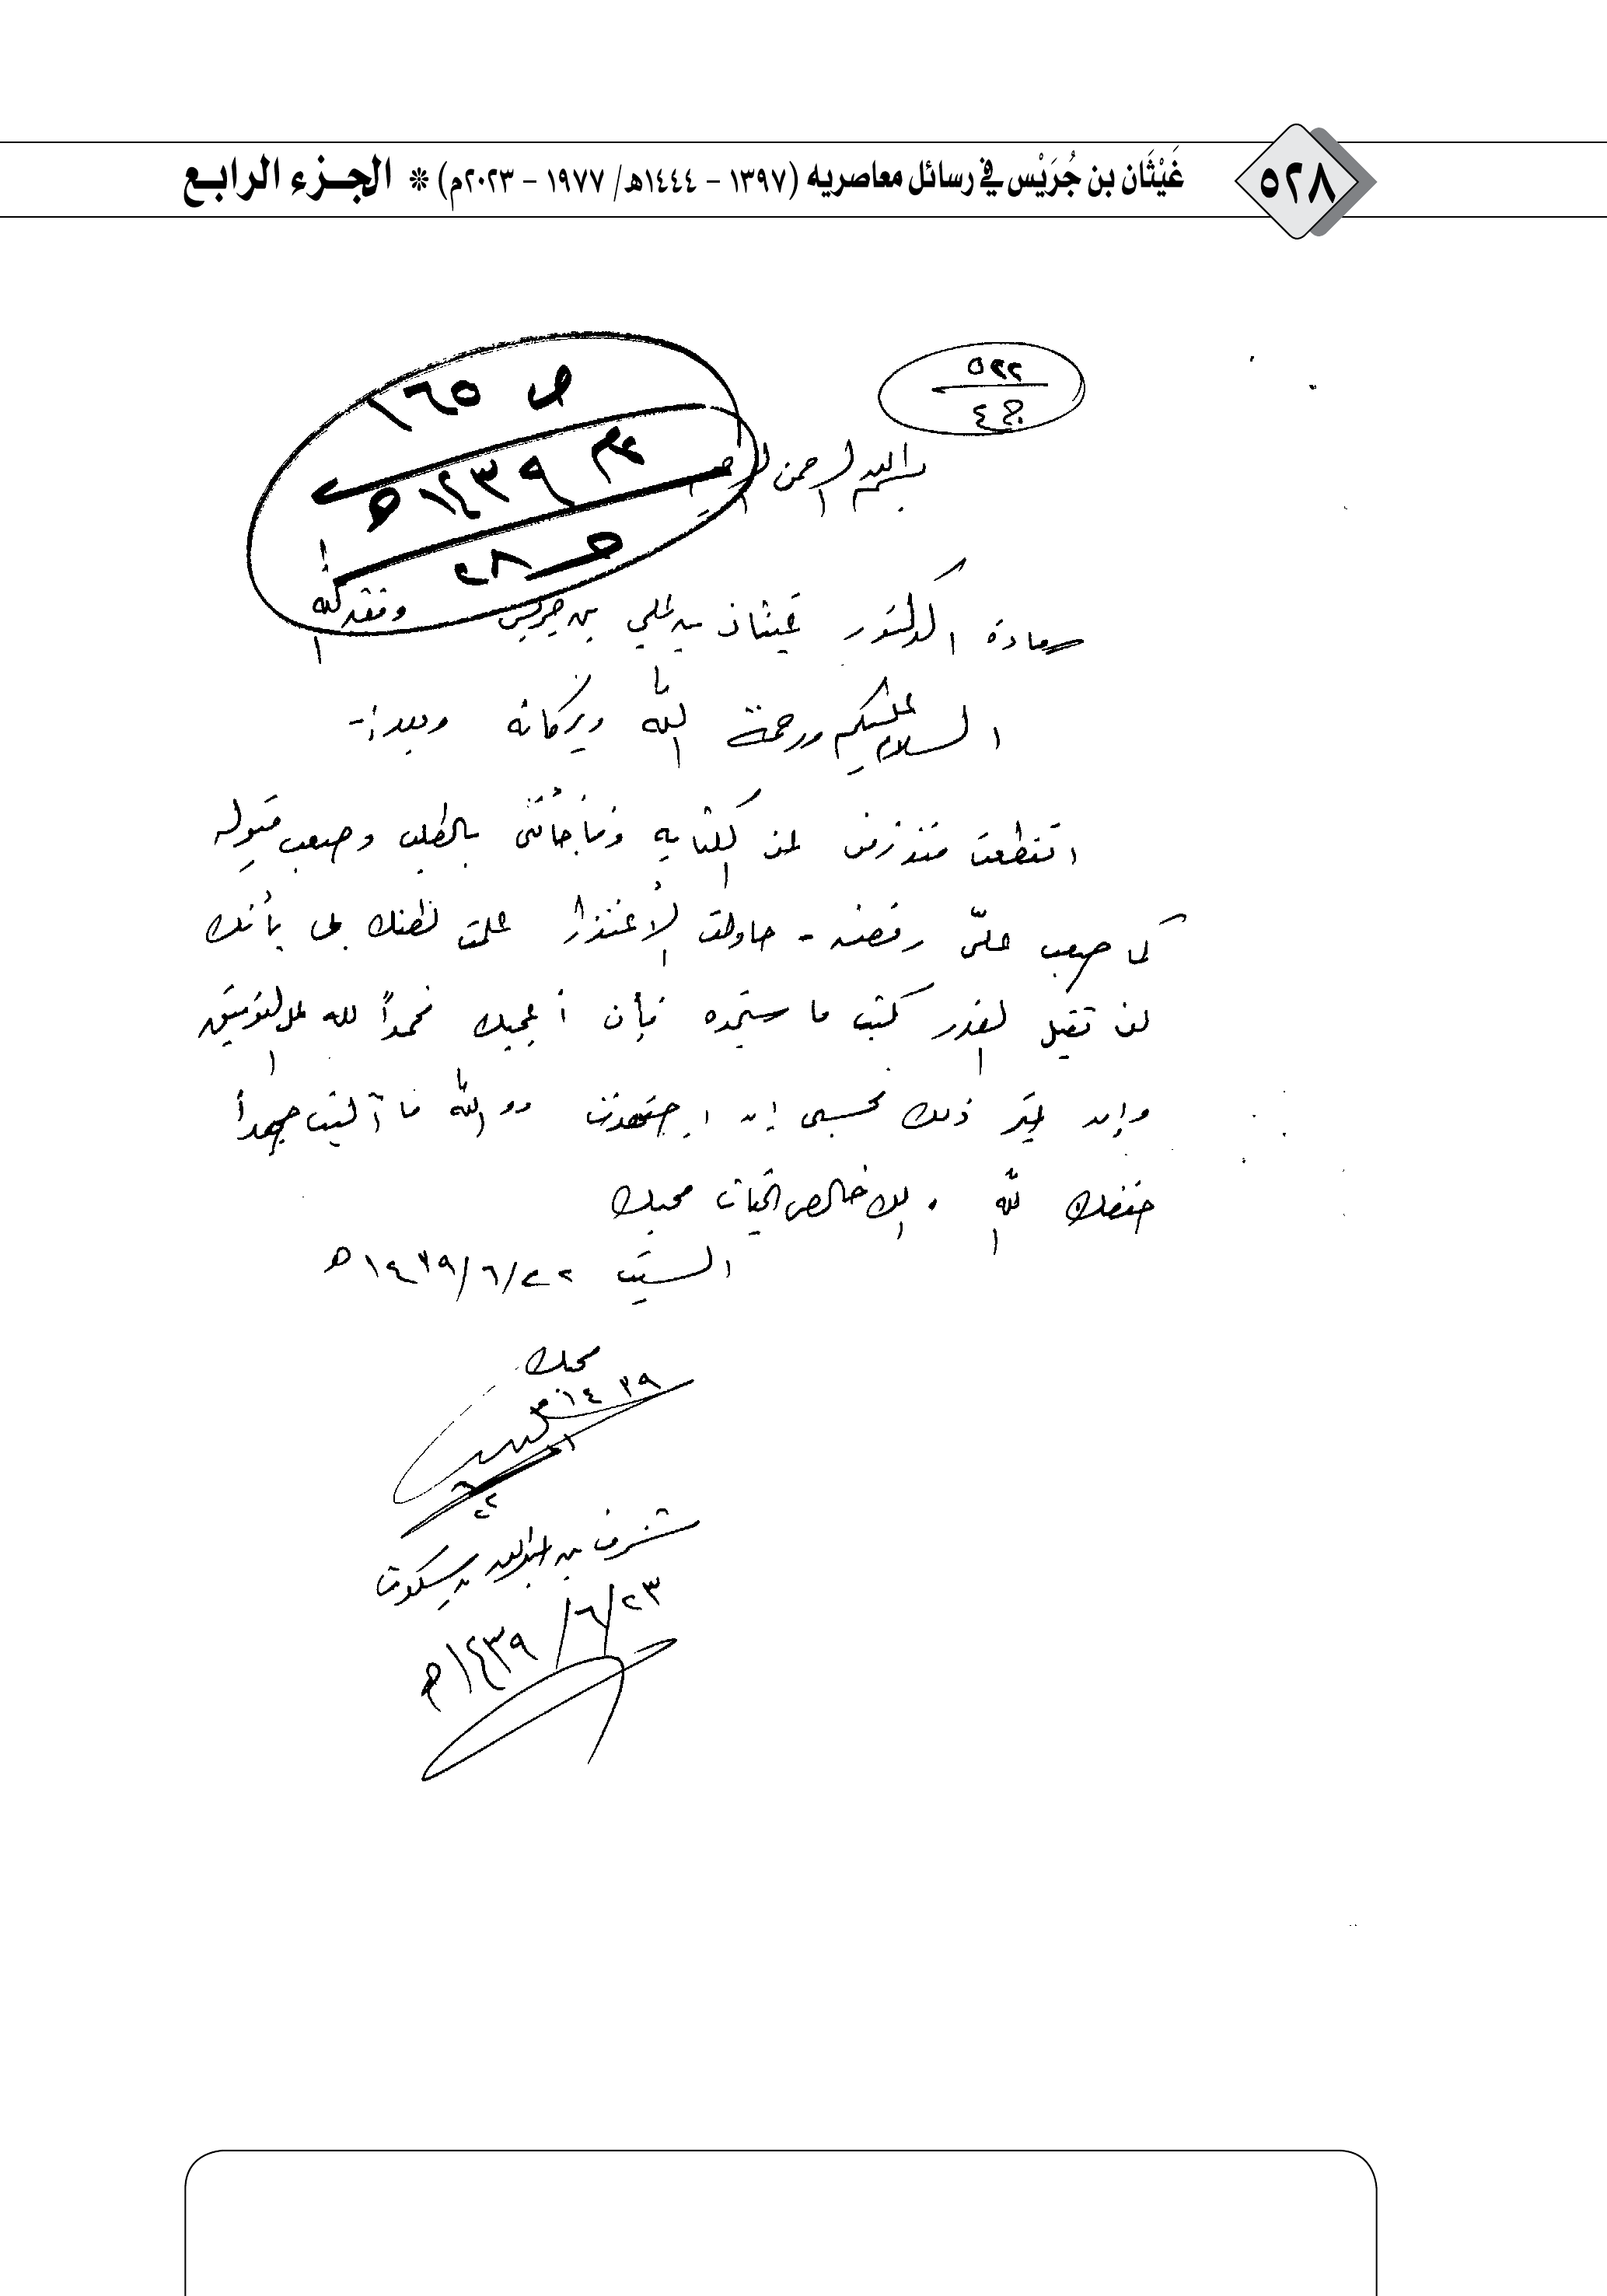 ٥٢٨
غَيْثَان بن جُرَيْس في رسائل معاصريه (١٣٩٧ – ١٤٤٤هـ/ ١٩٧٧ – ٢٠٢٣م) * الجـزء الرابـع
٥٢٢
ج ٤
ص ١٦٥
عام ١٤٣٩هـ
حـ ٢٨
بسم الله الرحمن الرحيم
سعادة الدكتور غيثان بن علي بن جريس وفقه الله
السلام عليكم ورحمة الله وبركاته وبعد :-
انقطعت منذ زمن عن الكتابة وفاجأتني بالطلب وصعب قبوله
كما صعب عليّ رفضه - حاولت الأعتذار علمت بأنك
لن تقبل العذر كتبت ما ستجده فإن أعجبك فحمداً لله على التوفيق
وإن غير ذلك فحسبي إن اجتهدت ووالله ما آليت جهداً
حفظك الله . ولك خالص التحيات محبك
السبت ٢٢/٦/١٤٣٩هـ
محبك
١٤٣٩هـ
٦
٢٢
مشرف بن عبدالله بن مسكوت
٢٣/٦/١٤٣٩هـ